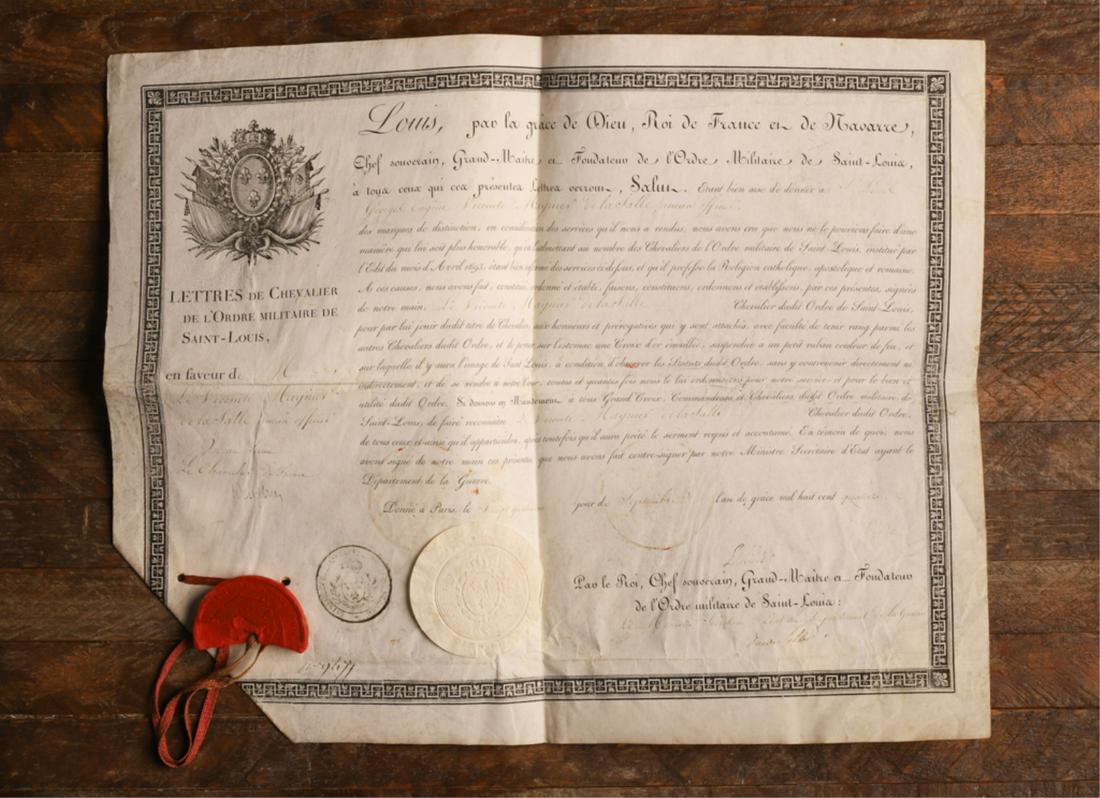 LETTRES DE CHEVALIER
DE L'ORDRE MILITAIRE DE
SAINT-LOUIS,
en faveur de
Le Vicomte Magnier
de la Salle ancien officier
Le Chancelier de France
Louis, par la grâce de Dieu, Roi de France et de Navarre,
Chef souverain, Grand-Maître et Fondateur de l'Ordre Militaire de Saint-Louis,
à tous ceux qui ces présentes Lettres verront, Salut. Etant bien aise de donner à
Georges Eugène Vicomte Magnier de la Salle ancien officier
des marques de distinction, en considération des services qu'il nous a rendus, nous avons cru que nous ne le pouvions faire d'une
manière qui lui soit plus honorable, qu'en l'admettant au nombre des Chevaliers de l'Ordre militaire de Saint-Louis, institué par
l'Edit du mois d'Avril 1693, étant bien informé des services ci-dessus, et qu'il professe la Religion catholique, apostolique et romaine.
A ces causes, nous avons fait, constitué, ordonné et établi, faisons, constituons, ordonnons et établissons, par ces présentes, signées
de notre main, Le Vicomte Magnier de la Salle Chevalier dudit Ordre de Saint-Louis,
pour par lui jouir dudit titre de Chevalier, aux honneurs et prérogatives qui y sont attachés, avec faculté de tenir rang parmi les
autres Chevaliers dudit Ordre, et de porter sur l'estomac une Croix d'or émaillée, suspendue à un petit ruban couleur de feu, et
sur laquelle il y aura l'image de Saint Louis, à condition d'observer les Statuts dudit Ordre, sans y contrevenir directement ni
indirectement, et de se rendre à notre Cour, toutes et quantes fois nous le lui ordonnerons pour notre service, et pour le bien et
utilité dudit Ordre. Si donnons en Mandement à tous Grand'Croix, Commandeurs et Chevaliers dudit Ordre militaire de
Saint-Louis, de faire reconnaître Le Vicomte Magnier de la Salle Chevalier dudit Ordre,
de tous ceux et ainsi qu'il appartiendra, après toutefois qu'il aura prêté le serment requis et accoutumé. En témoin de quoi, nous
avons signé de notre main ces présentes que nous avons fait contre-signer par notre Ministre Secrétaire d'Etat ayant le
Département de la Guerre.
Donné à Paris, le jour de Septembre l'an de grâce mil huit cent
Louis
Par le Roi, Chef souverain, Grand-Maître et Fondateur
de l'Ordre militaire de Saint-Louis: